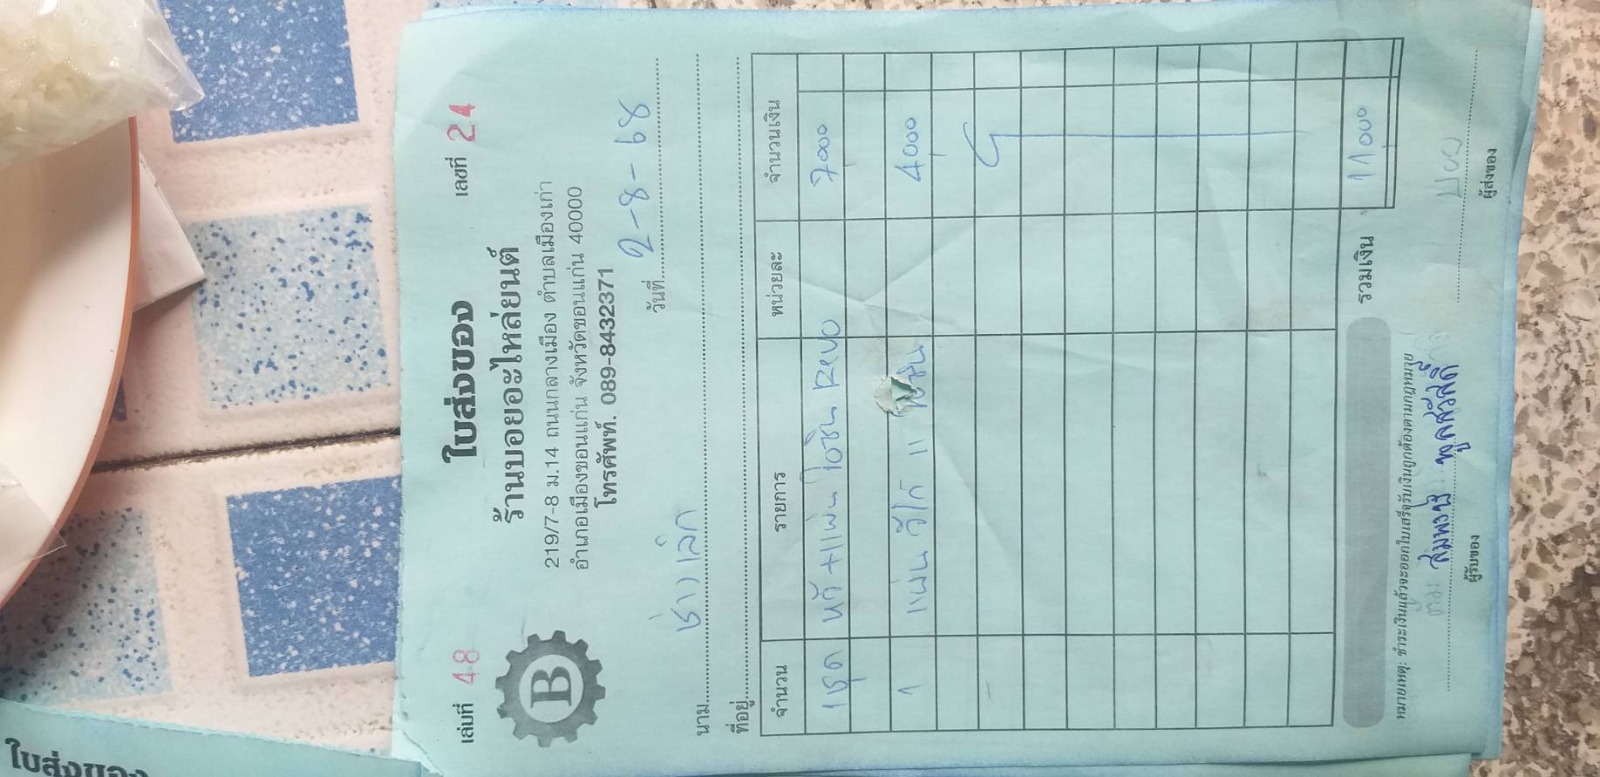 เล่มที่ 48 ใบส่งของ เลขที่ 24
ร้านบอยอะไหล่ยนต์
219/7-8 ม.14 ถนนกลางเมือง ตำบลเมืองเก่า
อำเภอเมืองขอนแก่น จังหวัดขอนแก่น 40000
โทรศัพท์. 089-8432371
B
วันที่ 2-8-68
นาม ช่างเล็ก
ที่อยู่
จำนวน รายการ หน่วยละ จำนวนเงิน
1ชุด หวี+แผ่น ไอชิน REVO 7000
1 แผ่น วีโก้ 4000
รวมเงิน 11000
หมายเหตุ: ชำระเงินแล้วจะออกใบเสร็จรับเงินถูกต้องตามกฎหมาย
สมพงษ์ พูลสวัสดิ์ บอย
ผู้รับของ ผู้ส่งของ
ใบส่งของ